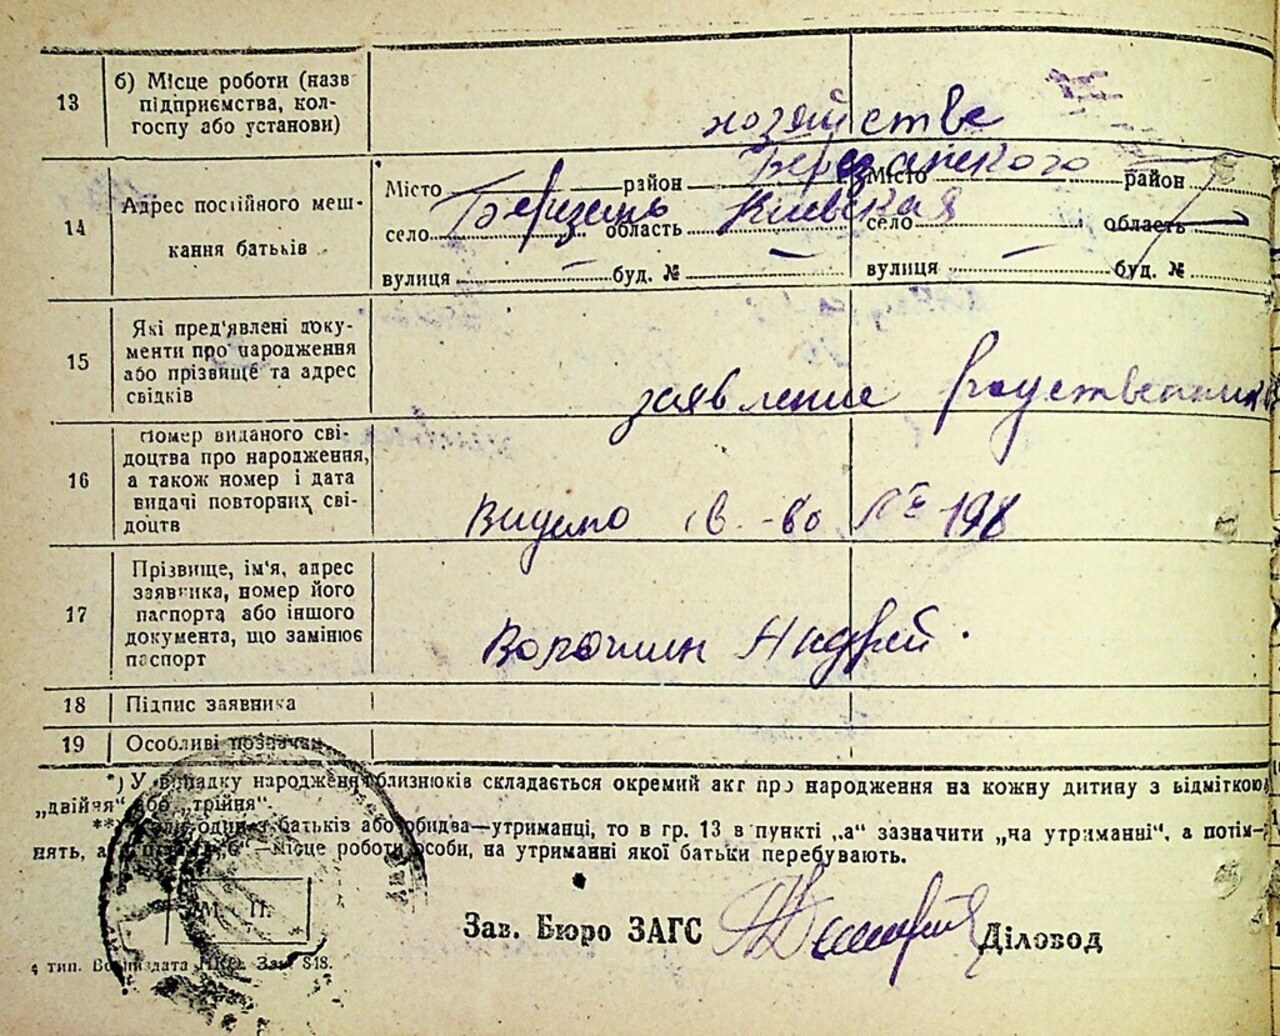 13
б) Місце роботи (назв
підприємства, кол-
госпу або установи)
хозяйстве
14
Адрес постійного меш-
кання батьків
Місто район Березанского Місто район
село Березань область Киевская село область
вулиця — буд. № — вулиця — буд. №
15
Які пред'явлені доку-
менти про народження
або прізвище та адрес
свідків
заявление родственник
16
Номер виданого сві-
доцтва про народження,
а також номер і дата
видачі повторних сві-
доцтв
Видано св.-во № 198
17
Прізвище, ім'я, адрес
заявника, номер його
паспорта або іншого
документа, що замінює
паспорт
Андрей
18 Підпис заявника
19 Особливі позначки
*) У випадку народження близнюків складається окремий акт про народження на кожну дитину з відміткою
„двійня“ або „трійня“.
**) Коли один з батьків або обидва—утриманці, то в гр. 13 в пункті „а“ зазначити „на утриманні“, а потім-
нять, а „б“—місце роботи особи, на утриманні якої батьки перебувають.
М. П.
Зав. Бюро ЗАГС Діловод
тип. Зак. 818.